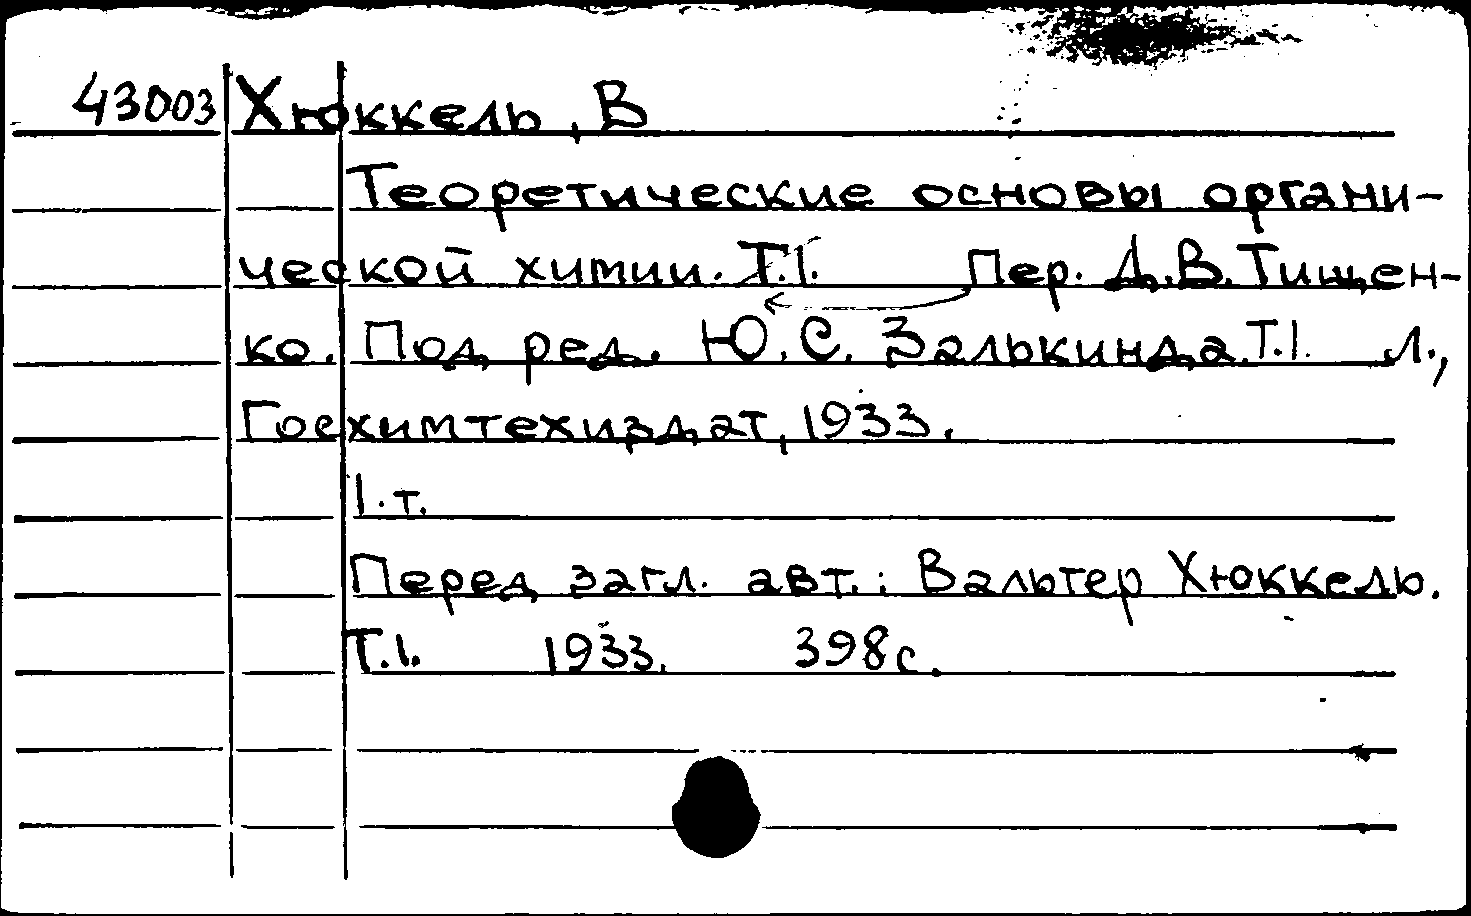 43003 Хюккель, В
Теоретические основы органи-
ческой химии. Т.1. Пер. Д.В. Тищен-
ко. Под ред. Ю.С. Залькинда. Т.1. Л.,
Госхимтехиздат, 1933.
1.т.
Перед загл. авт.: Вальтер Хюккель.
Т.1. 1933. 398с.